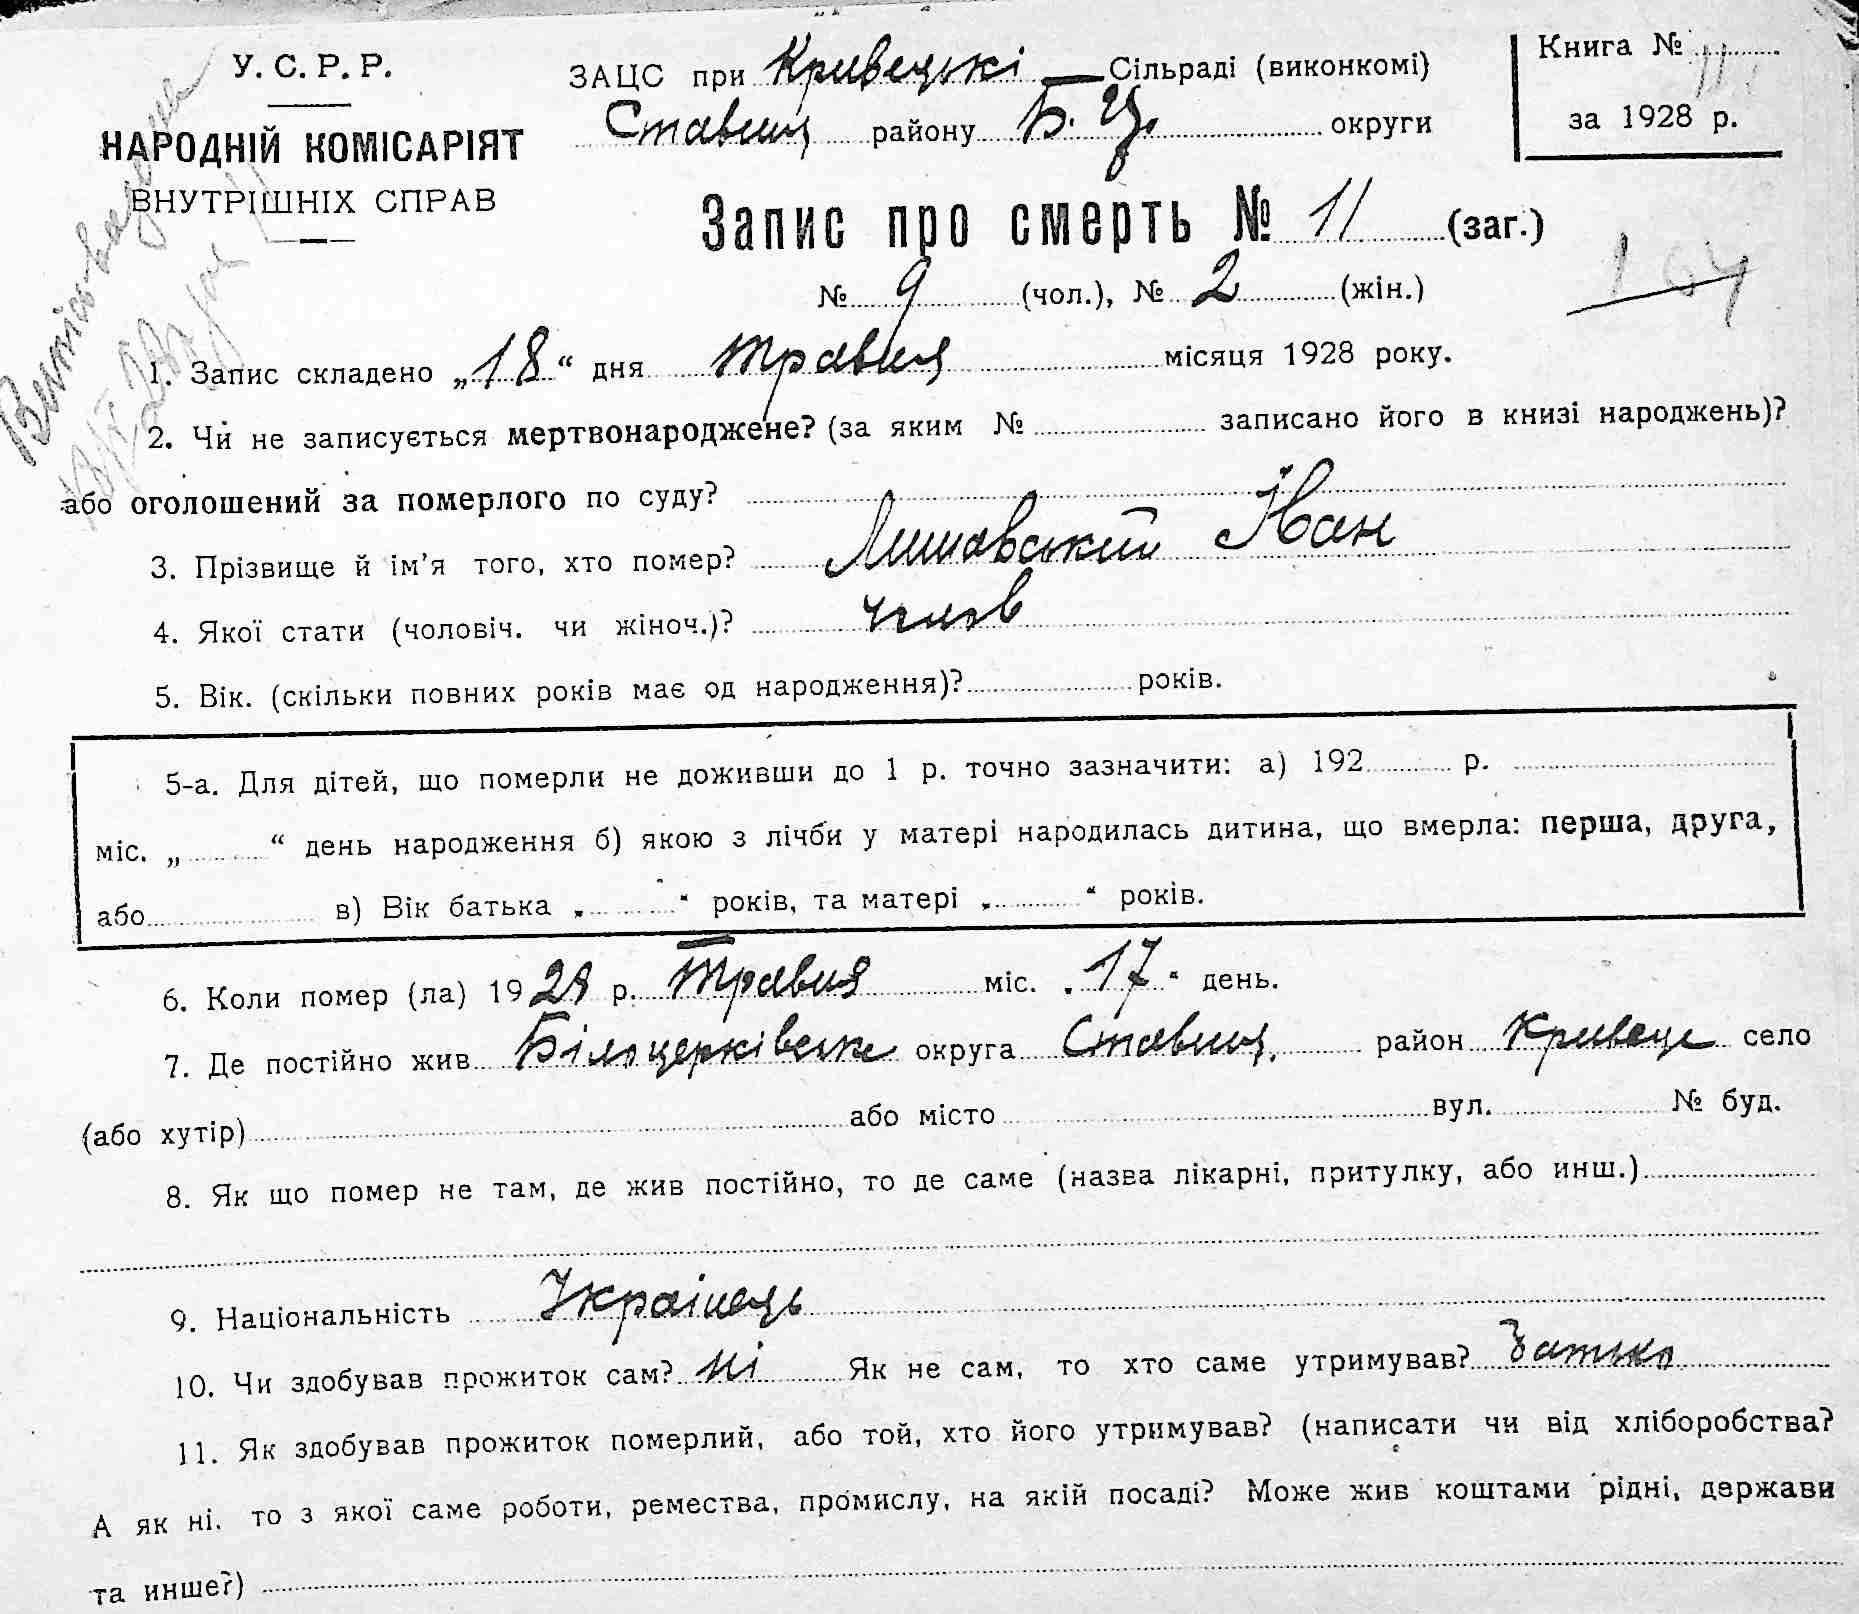 У. С. Р. Р.
НАРОДНІЙ КОМІСАРІЯТ
ВНУТРІШНІХ СПРАВ
ЗАЦС при Кривецькі Сільраді (виконкомі)
Ставищ району Б. Ц. округи
Книга №
за 1928 р.
Запис про смерть № 11 (заг.)
№ 9 (чол.), № 2 (жін.)
164
1. Запис складено „18“ дня травня місяця 1928 року.
2. Чи не записується мертвонароджене? (за яким № записано його в книзі народжень)?
або оголошений за померлого по суду?
3. Прізвище й ім'я того, хто помер? Лишавський Іван
4. Якої стати (чоловіч. чи жіноч.)? чолов
5. Вік. (скільки повних років має од народження)? років.
5-а. Для дітей, що померли не доживши до 1 р. точно зазначити: а) 192 р.
міс. „ “ день народження б) якою з лічби у матері народилась дитина, що вмерла: перша, друга,
або в) Вік батька „ “ років, та матері „ “ років.
6. Коли помер (ла) 1928 р. Травня міс. „17“ день.
7. Де постійно жив Білоцерківське округа Ставищ. район Кривець село
(або хутір) або місто вул. № буд.
8. Як що помер не там, де жив постійно, то де саме (назва лікарні, притулку, або инш.)
9. Національність Українець
10. Чи здобував прожиток сам? ні Як не сам, то хто саме утримував? Батько
11. Як здобував прожиток померлий, або той, хто його утримував? (написати чи від хліборобства?
А як ні, то з якої саме роботи, ремества, промислу, на якій посаді? Може жив коштами рідні, держави
та инше?)